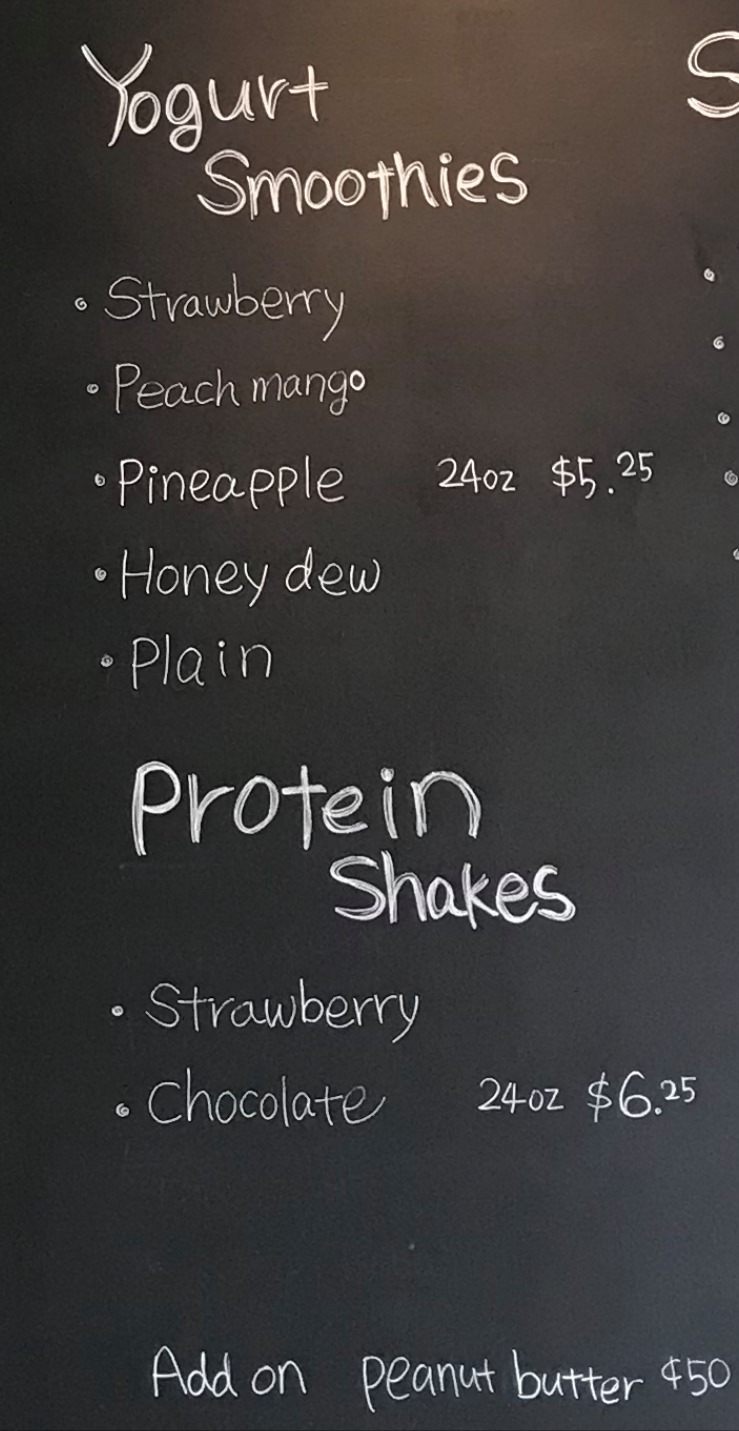 Yogurt
Smoothies
• Strawberry
• Peach mango
• Pineapple 24oz $5.25
• Honey dew
• Plain
Protein
Shakes
• Strawberry
• Chocolate 24oz $6.25
Add on peanut butter ¢50